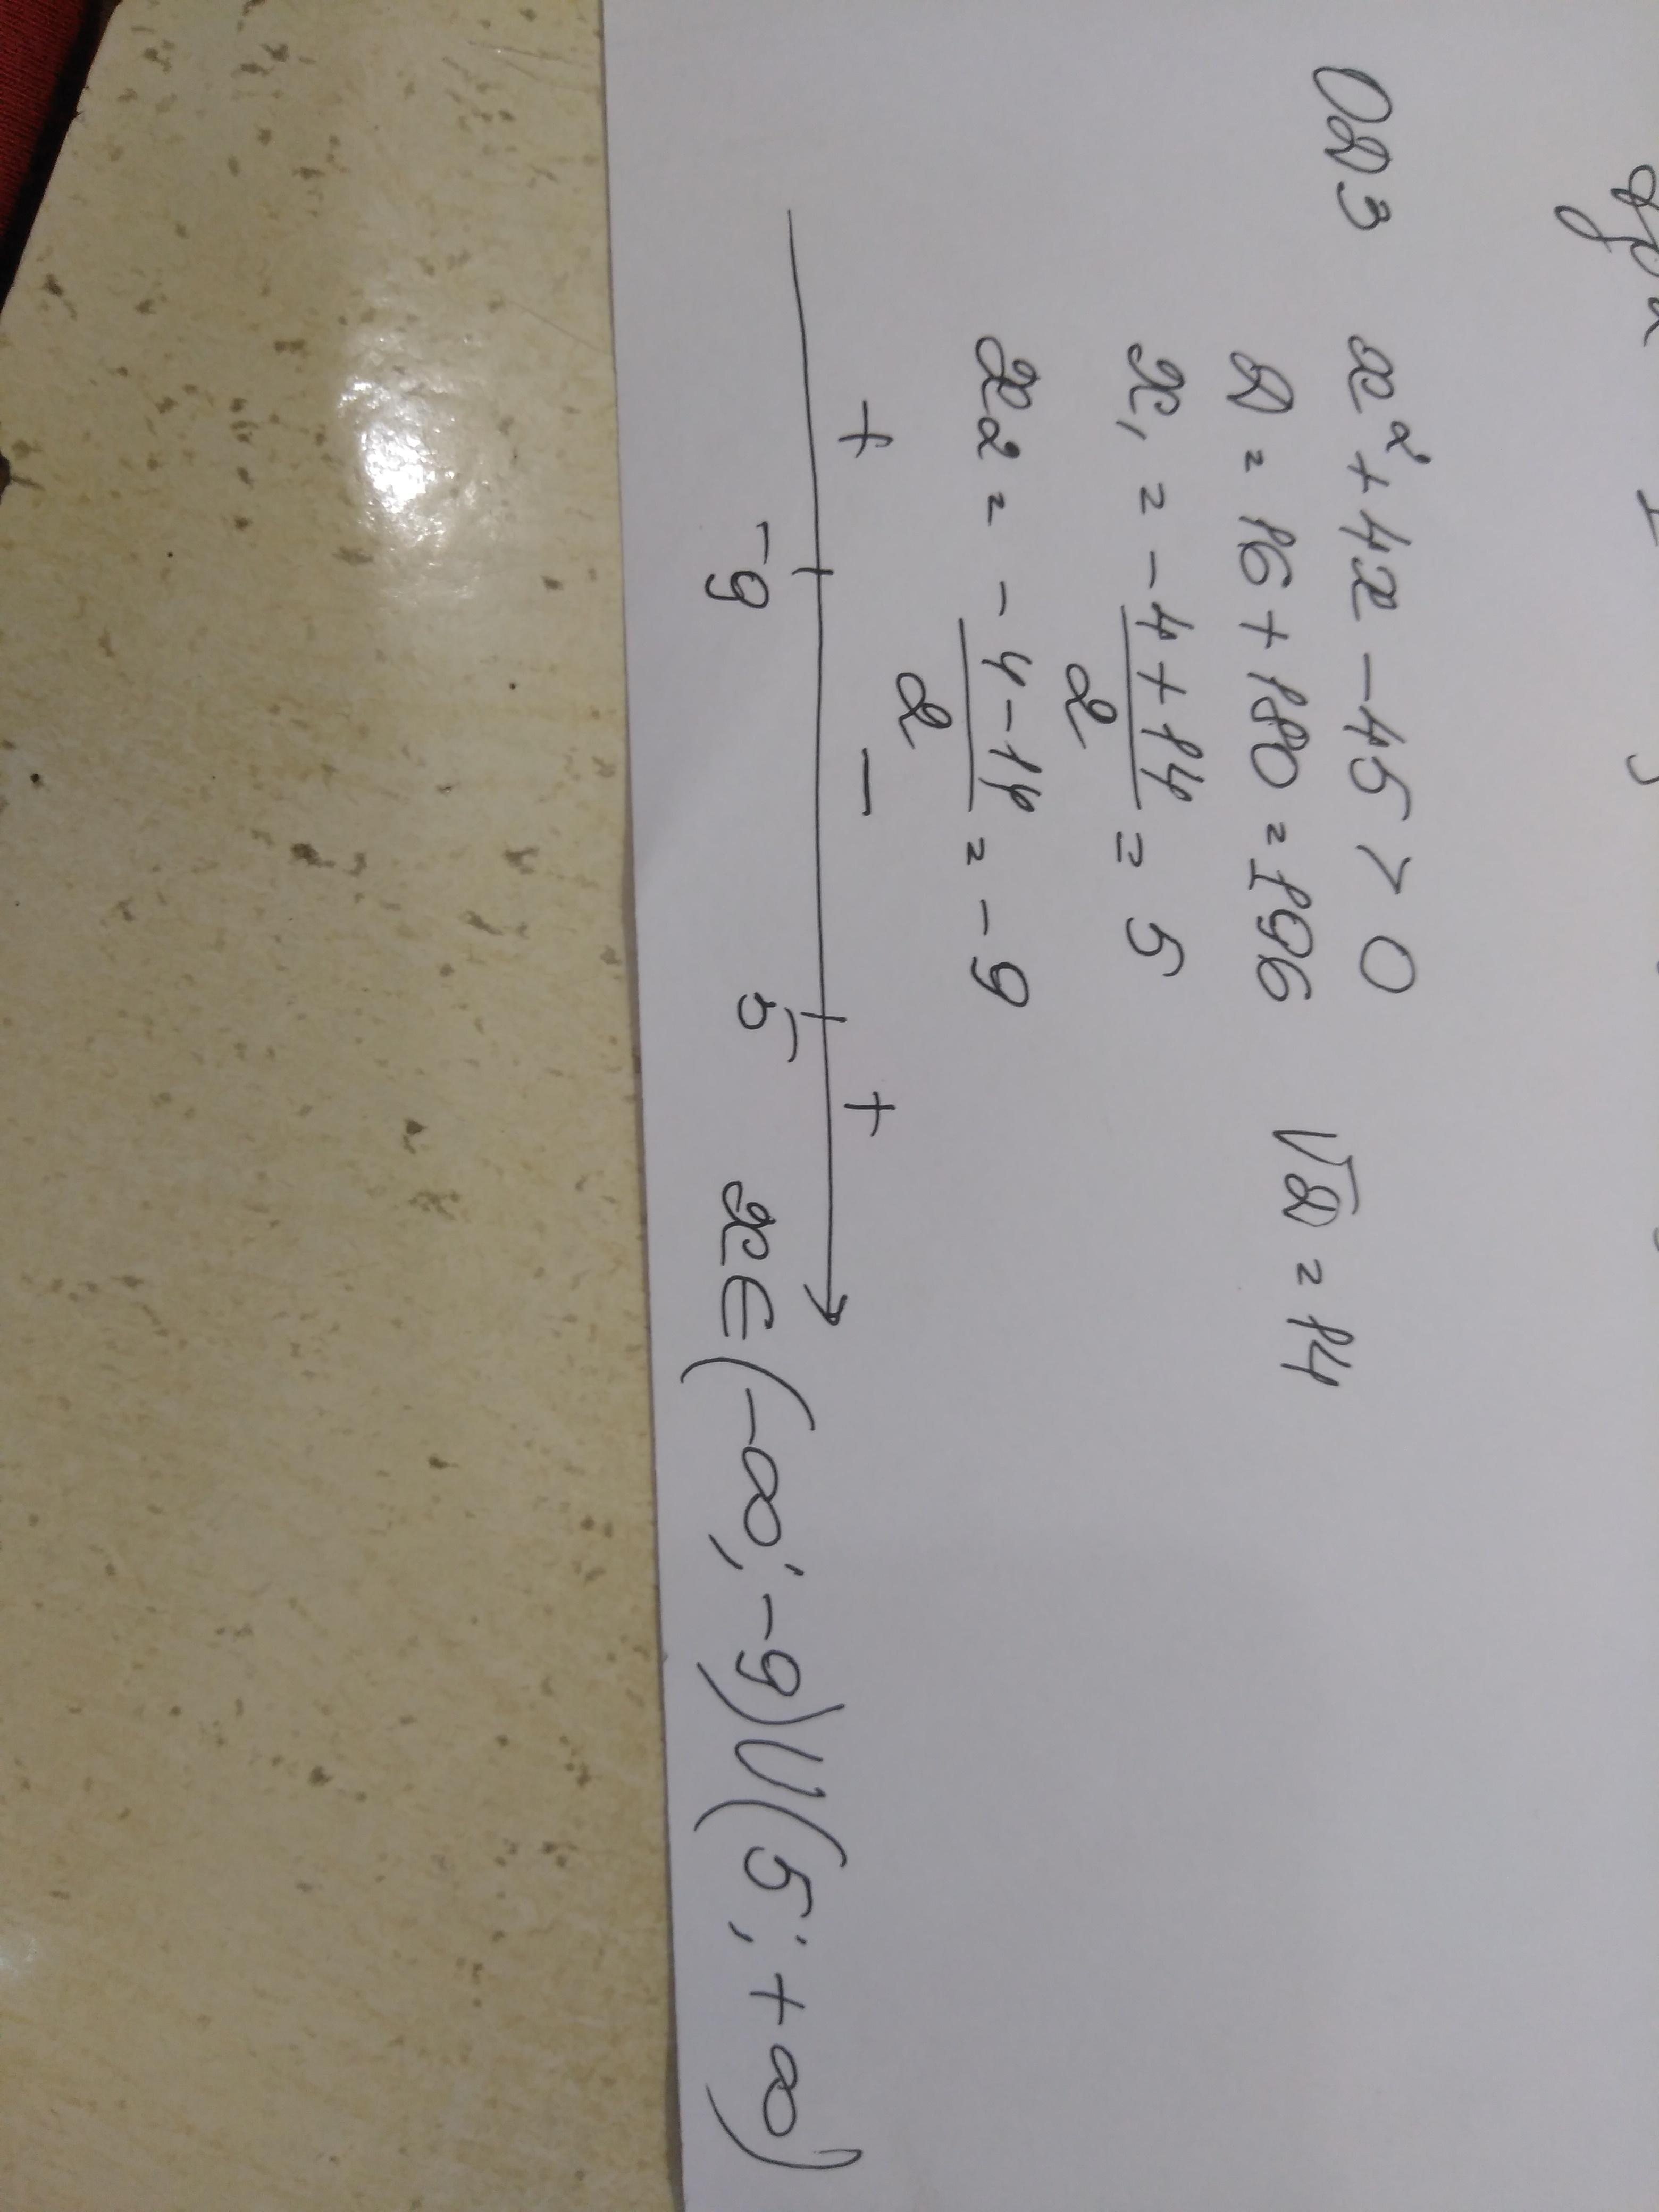 ОДЗ x² + 4x - 45 > 0
D = 16 + 180 = 196 √D = 14
x₁ = (-4 + 14)/2 = 5
x₂ = (-4 - 14)/2 = -9
+ - +
-9 5
x ∈ (-∞; -9) ∪ (5; +∞)